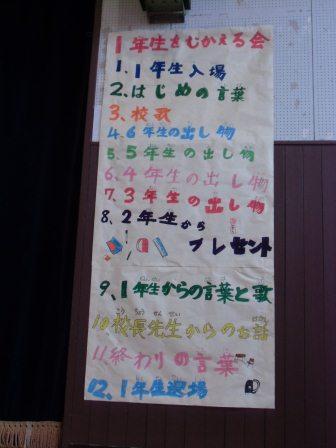 1年生をむかえる会
1.1年生入場
2.はじめの言葉
3.校歌
4.6年生の出し物
5.5年生の出し物
6.4年生の出し物
7.3年生の出し物
8.2年生から
プレゼント
9.1年生からの言葉と歌
10校長先生からのお話
11終わりの言葉
12.1年生退場